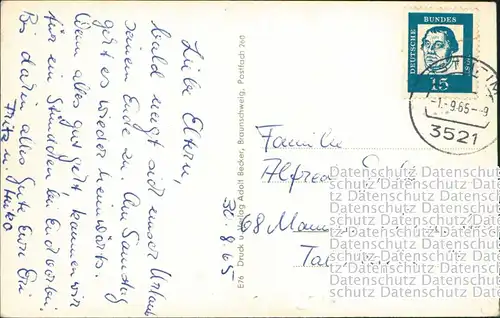 Liebe Eltern,
bald neigt sich unser Urlaub
seinem Ende zu. Am Samstag
geht es wieder heimwärts.
Wenn alles gut geht kommen wir
für ein Stündchen bei Euch vorbei.
Bis dahin alles Gute Eure
Fritz u. Heiko
30 8.65
E76 Druck u. Verlag Adolf Becker, Braunschweig, Postfach 268
DEUTSCHE
BUNDES
15
-1.-9.65--9
3521
Familie
Alfred
68 Mann
Datenschutz Datenschutz
schutz Datenschutz Daten
Datenschutz Datenschutz
schutz Datenschutz Daten
Datenschutz Datenschutz
schutz Datenschutz Daten
Datenschutz Datenschutz
schutz Datenschutz Daten
Datenschutz Datenschutz
schutz Datenschutz Daten
Datenschutz Datenschutz